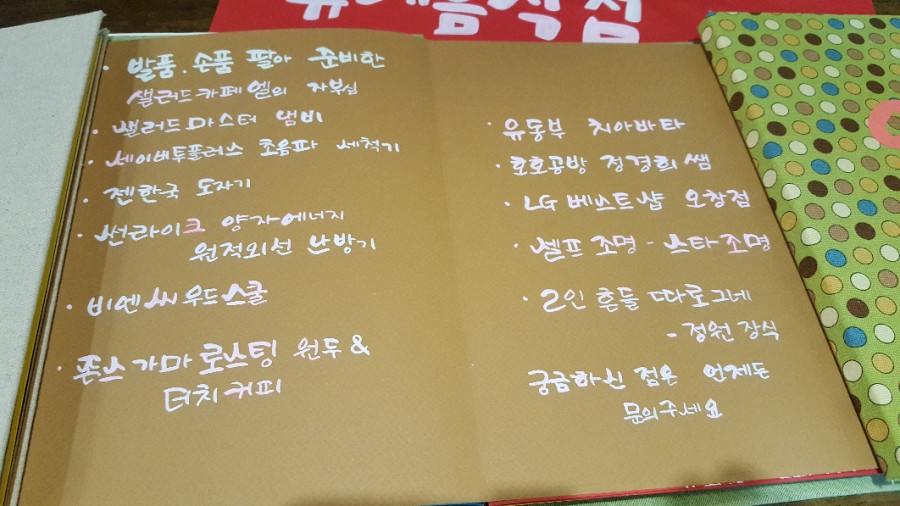 휴게음식점
· 발품. 손품 팔아 준비한
샐러드카페 엘의 자부심
· 샐러드마스터 냄비
· 세이버투플러스 초음파 세척기
· 젠한국 도자기
· 썬라이크 양자에너지
원적외선 난방기
· 비엔씨 우드스쿨
· 존스 가마 로스팅 원두 &
더치커피
· 유동부 치아바타
· 호호공방 정경희쌤
· LG 베스트샵 오창점
· 셀프조명 - 스타조명
· 2인 흔들 따로그네
- 정원장식
궁금하신 점은 언제든
문의주세요